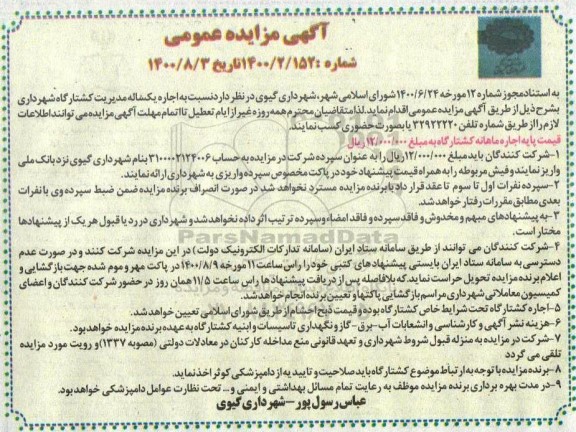 آگهی مزایده عمومی
شماره :۱۴۰۰/۲/۱۵۲تاریخ ۱۴۰۰/۸/۳
به استنادمجوز شماره ۱۲مورخه ۱۴۰۰/۶/۲۴شورای اسلامی شهر، شهرداری گیوی در نظر دارد نسبت به اجاره یکساله مدیریت کشتارگاه شهرداری
بشرح ذیل از طریق آگهی مزایده عمومی اقدام نماید.لذا متقاضیان محترم همه روزه غیر از ایام تعطیل تا اتمام مهلت آگهی مزایده می توانند اطلاعات
لازم را از طریق شماره تلفن ۳۲۹۲۲۲۲۰ یا بصورت حضوری کسب نمایند.
قیمت پایه اجاره ماهانه کشتارگاه به مبلغ ۱۲/۰۰۰/۰۰۰ ریال
۱-شرکت کنندگان باید مبلغ ۱۲/۰۰۰/۰۰۰ریال را به عنوان سپرده شرکت در مزایده به حساب ۳۱۰۰۰۰۲۱۲۴۰۰۶ بنام شهرداری گیوی نزد بانک ملی
واریز نمایند و فیش مربوطه را به همراه قیمت پیشنهاد خود در پاکت مخصوص سپرده واریزی به شهرداری ارائه نمایند.
۲-سپرده نفرات اول تا سوم تا عقد قرار داد با برنده مزایده مسترد نخواهد شد در صورت انصراف برنده مزایده ضمن ضبط سپرده وی با نفرات
بعدی مطابق مقررات رفتار خواهد شد.
۳-به پیشنهادهای مبهم و مخدوش و فاقد سپرده و فاقد امضاء و سپرده ترتیب اثر داده نخواهد شد و شهرداری در رد یا قبول هر یک از پیشنهادها
مختار است.
۴-شرکت کنندگان می توانند از طریق سامانه ستاد ایران (سامانه تدارکات الکترونیک دولت) در این مزایده شرکت کنند و در صورت عدم
دسترسی به سامانه ستاد ایران بایستی پیشنهاد های کتبی خود را راس ساعت ۱۱ مورخه ۱۴۰۰/۸/۹ در پاکت مهر و موم شده جهت بازگشایی و
اعلام برنده مزایده تحویل حراست نماید.که بلافاصله پس از دریافت پیشنهادها راس ساعت ۱۱/۵ همان روز در حضور شرکت کنندگان و اعضای
کمیسیون معاملاتی شهرداری مراسم بازگشایی پاکتها و تعیین برنده انجام خواهد شد.
۵-اجاره کشتارگاه تحت شرایط خاص کشتارگاه بوده و قیمت ذبح احشام از طریق شورای اسلامی تعیین خواهد شد.
۶-هزینه نشر آگهی و کارشناسی و انشعابات آب-برق-گاز و نگهداری تاسیسات و ابنیه کشتارگاه به عهده برنده مزایده خواهد بود.
۷-شرکت در مزایده به منزله قبول شروط شهرداری و تعهد قانونی منع مداخله کارکنان در معادلات دولتی (مصوبه ۱۳۳۷)و رویت مورد مزایده
تلقی می گردد
۸-برنده مزایده با توجه به ارتباط موضوع کشتارگاه باید صلاحیت و تاییدیه از دامپزشکی کوثر اخذ نماید.
۹-در مدت بهره برداری برنده مزایده موظف به رعایت تمام مسائل بهداشتی و ایمنی و... تحت نظارت عوامل دامپزشکی خواهد بود.
عباس رسول پور-شهرداری گیوی
ParsNamadData